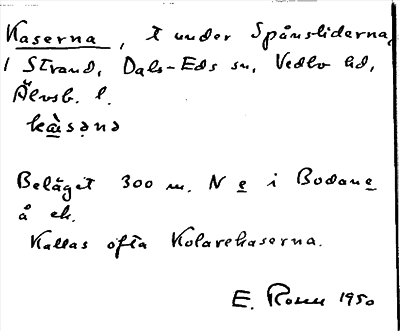 Kaserna, t under Spånsliderna,
i Strand, Dals-Eds sn, Vedbo hd,
Älvsb. l.
kàsəṇə
Beläget 300 m. N e i Bodane
å ek.
Kallas ofta Kolarekaserna.
E. Rosen 1950